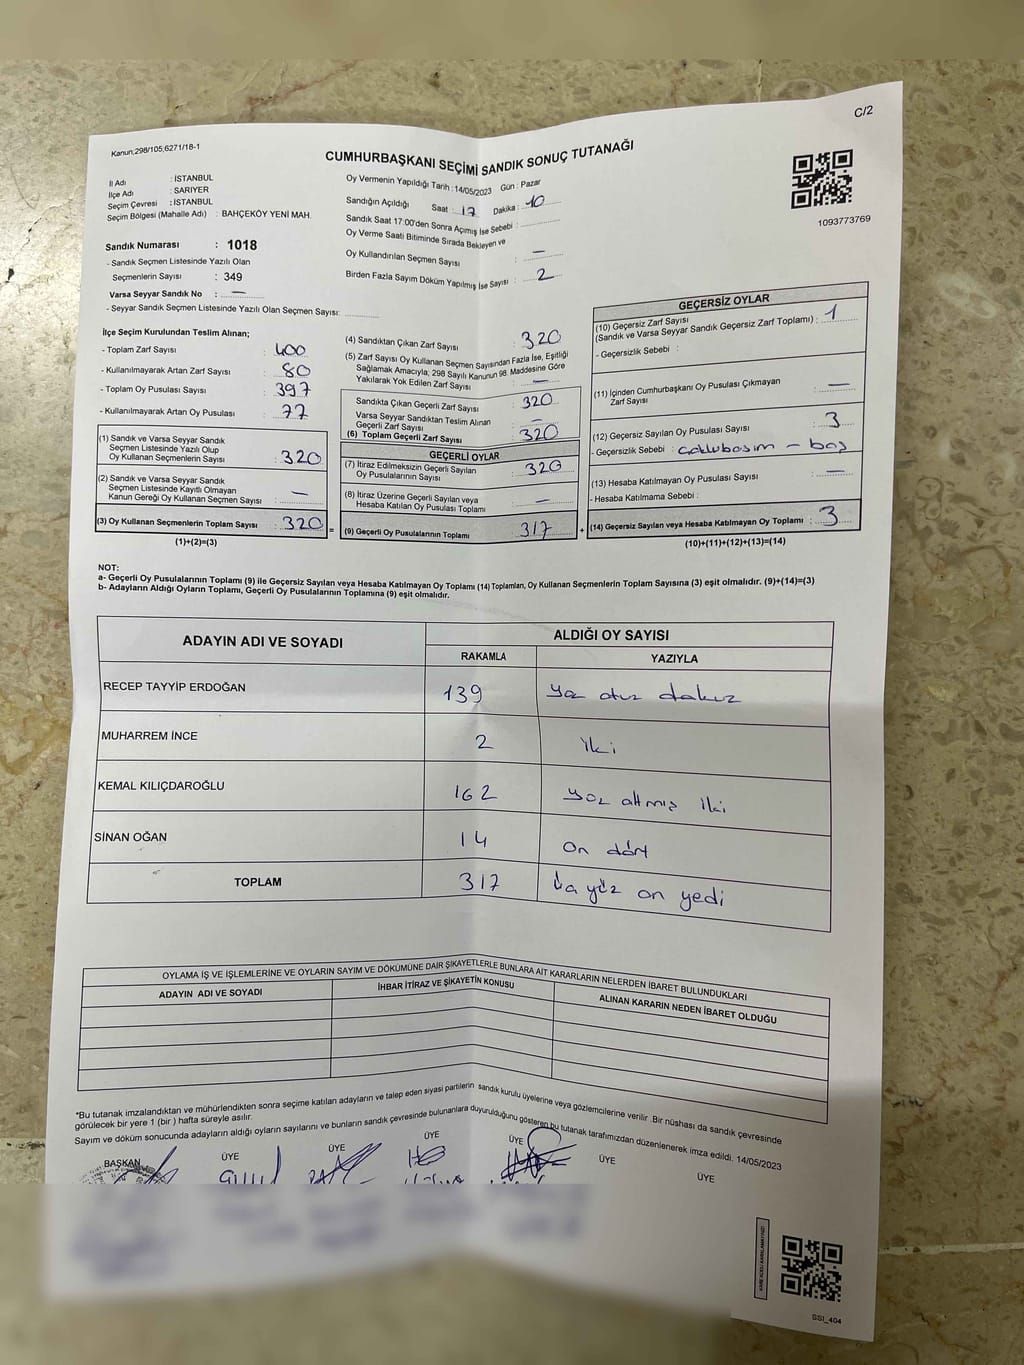 C/2
Kanun:298/105;6271/18-1
CUMHURBAŞKANI SEÇİMİ SANDIK SONUÇ TUTANAĞI
İl Adı : İSTANBUL
İlçe Adı : SARIYER
Seçim Çevresi : İSTANBUL
Seçim Bölgesi (Mahalle Adı) : BAHÇEKÖY YENİ MAH.
Sandık Numarası : 1018
- Sandık Seçmen Listesinde Yazılı Olan
Seçmenlerin Sayısı : 349
Varsa Seyyar Sandık No : —
- Seyyar Sandık Seçmen Listesinde Yazılı Olan Seçmen Sayısı:
Oy Vermenin Yapıldığı Tarih : 14/05/2023 Gün : Pazar
Sandığın Açıldığı Saat : 17 Dakika : 10
Sandık Saat 17:00'den Sonra Açımış İse Sebebi :
Oy Verme Saati Bitiminde Sırada Bekleyen ve
Oy Kullandırılan Seçmen Sayısı : —
Birden Fazla Sayım Döküm Yapılmış İse Sayısı : 2
1093773769
İlçe Seçim Kurulundan Teslim Alınan;
- Toplam Zarf Sayısı : 400
- Kullanılmayarak Artan Zarf Sayısı : 80
- Toplam Oy Pusulası Sayısı : 397
- Kullanılmayarak Artan Oy Pusulası : 77
(1) Sandık ve Varsa Seyyar Sandık
Seçmen Listesinde Yazılı Olup
Oy Kullanan Seçmenlerin Sayısı : 320
(2) Sandık ve Varsa Seyyar Sandık
Seçmen Listesinde Kayıtlı Olmayan
Kanun Gereği Oy Kullanan Seçmen Sayısı : —
(3) Oy Kullanan Seçmenlerin Toplam Sayısı : 320 =
(1)+(2)=(3)
(4) Sandıktan Çıkan Zarf Sayısı : 320
(5) Zarf Sayısı Oy Kullanan Seçmen Sayısından Fazla İse, Eşitliği
Sağlamak Amacıyla, 298 Sayılı Kanunun 98. Maddesine Göre
Yakılarak Yok Edilen Zarf Sayısı : —
Sandıkta Çıkan Geçerli Zarf Sayısı : 320
Varsa Seyyar Sandıktan Teslim Alınan
Geçerli Zarf Sayısı : —
(6) Toplam Geçerli Zarf Sayısı : 320
GEÇERLİ OYLAR
(7) İtiraz Edilmeksizin Geçerli Sayılan
Oy Pusulalarının Sayısı : 320
(8) İtiraz Üzerine Geçerli Sayılan veya
Hesaba Katılan Oy Pusulası Toplamı : —
(9) Geçerli Oy Pusulalarının Toplamı : 317 +
GEÇERSİZ OYLAR
(10) Geçersiz Zarf Sayısı
(Sandık ve Varsa Seyyar Sandık Geçersiz Zarf Toplamı) : 1
- Geçersizlik Sebebi :
(11) İçinden Cumhurbaşkanı Oy Pusulası Çıkmayan
Zarf Sayısı : —
(12) Geçersiz Sayılan Oy Pusulası Sayısı : 3
- Geçersizlik Sebebi : – boş
(13) Hesaba Katılmayan Oy Pusulası Sayısı : —
- Hesaba Katılmama Sebebi :
(14) Geçersiz Sayılan veya Hesaba Katılmayan Oy Toplamı : 3
(10)+(11)+(12)+(13)=(14)
NOT:
a- Geçerli Oy Pusulalarının Toplamı (9) ile Geçersiz Sayılan veya Hesaba Katılmayan Oy Toplamı (14) Toplamları, Oy Kullanan Seçmenlerin Toplam Sayısına (3) eşit olmalıdır. (9)+(14)=(3)
b- Adayların Aldığı Oyların Toplamı, Geçerli Oy Pusulalarının Toplamına (9) eşit olmalıdır.
ADAYIN ADI VE SOYADI ALDIĞI OY SAYISI
RAKAMLA YAZIYLA
RECEP TAYYİP ERDOĞAN 139 yüz otuz dokuz
MUHARREM İNCE 2 iki
KEMAL KILIÇDAROĞLU 162 yüz altmış iki
SİNAN OĞAN 14 on dört
TOPLAM 317 üç yüz on yedi
OYLAMA İŞ VE İŞLEMLERİNE VE OYLARIN SAYIM VE DÖKÜMÜNE DAİR ŞİKAYETLERLE BUNLARA AİT KARARLARIN NELERDEN İBARET BULUNDUKLARI
ADAYIN ADI VE SOYADI İHBAR İTİRAZ VE ŞİKAYETİN KONUSU ALINAN KARARIN NEDEN İBARET OLDUĞU
*Bu tutanak imzalandıktan ve mühürlendikten sonra seçime katılan adayların ve talep eden siyasi partilerin sandık kurulu üyelerine veya gözlemcilerine verilir .Bir nüshası da sandık çevresinde
görülecek bir yere 1 (bir ) hafta süreyle asılır.
Sayım ve döküm sonucunda adayların aldığı oyların sayılarını ve bunların sandık çevresinde bulunanlara duyurulduğunu gösteren bu tutanak tarafımızdan düzenlenerek imza edildi. 14/05/2023
BAŞKAN ÜYE ÜYE ÜYE ÜYE ÜYE ÜYE
SSI_404